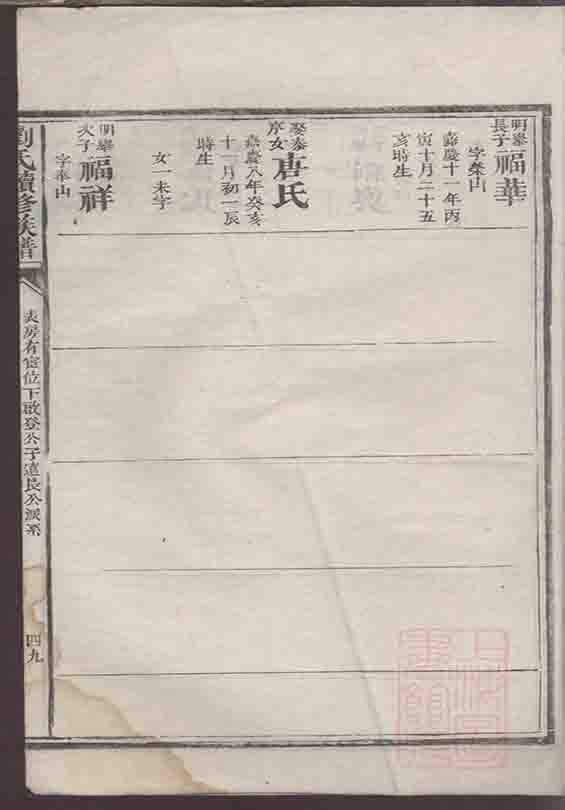 明舉
長子
福華
字榮山
嘉慶十一年丙
寅十月二十五
亥時生
娶泰
序女
唐氏
嘉慶八年癸亥
十一月初一辰
時生
女一未字
明舉
次子
福祥
字奉山
劉氏續修族譜
表房有宦位下啟登公子遠長公派系
四九